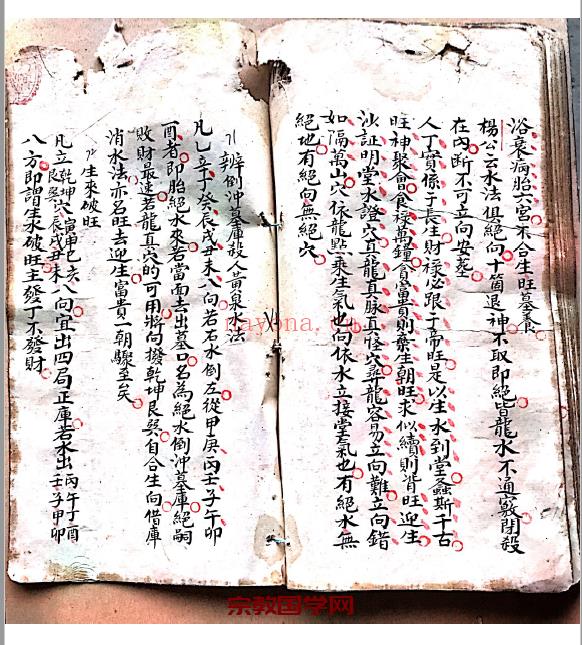 浴衰病胎六宮不合生旺墓養
楊公云水法俱絕向十箇退神不取即絕皆龍水不通竅閉殺
在內断不可立向安塟
人丁實係子長生財祿必跟子帝旺是以生水到堂螽斯千古
旺神聚會食祿萬鐘貪富貴則發生朝旺求似續則背旺迎生
沙証明堂水證穴真龍真脉真怪穴尋龍容易立向難立向錯
如隔萬山穴依龍點乘生氣也向依水立接堂氣也有絕水無
絕地有絕向無絕穴
辨倒冲墓庫殺人黃泉之法
凡乙辛丁癸辰戌丑未八向若右水倒左從甲庚丙壬子午卯
酉者即胎絕水來若當面去出墓口名為絕水倒冲墓庫絕嗣
敗財最速若龍真穴的可用將向撥乾坤艮巽自合生向借庫
消水法亦名旺去迎生富貴一朝驟至矣
生來破旺
凡立乾坤艮巽穴寅申巳亥辰戌丑未八向宜出四局正庫若水出丙午子酉壬子甲卯
八方即謂生水破旺主發丁不發財
nayona.cn
宗教国学网